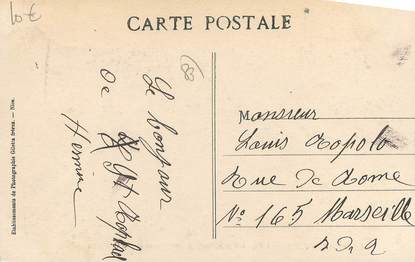 10€
CARTE POSTALE
83
Le bonjour
De
St Raphael
Hermine
Monsieur
Louis Ropolo
Rue De Rome
No 165 Marseille
Etablissements de Photographie Giletta frères. — Nice.